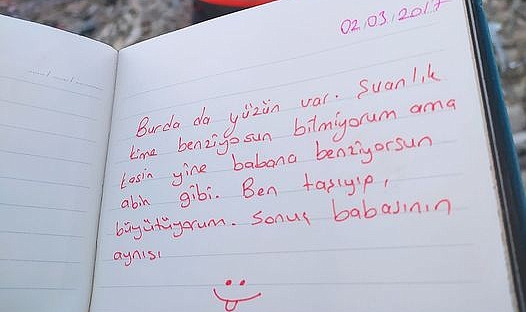 02.03.2017
Burda da yüzün var. Şuanlık
kime benziyosun bitmiyorum ama
kesin yine babana benziyorsun
abin gibi. Ben taşıyıp,
büyütüyorum. Sonuç babasının
aynısı